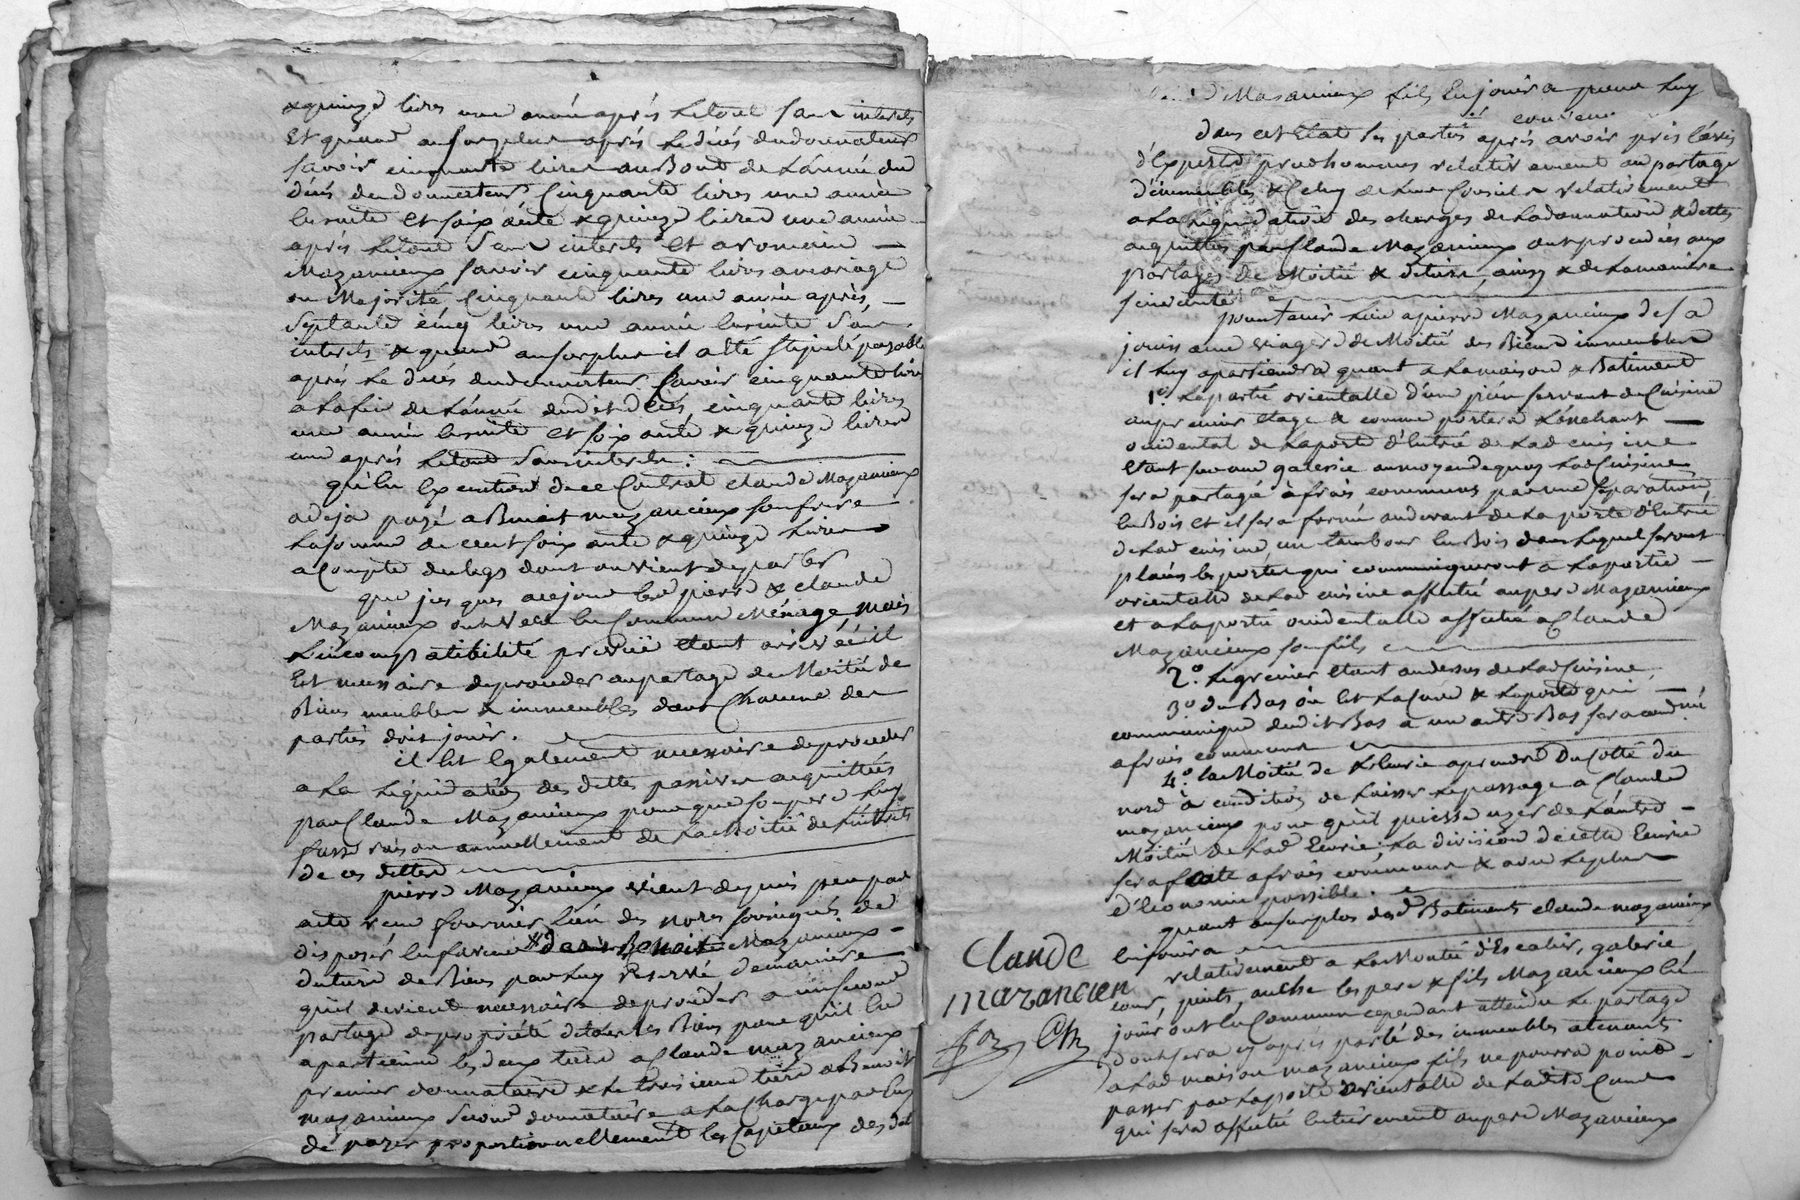 & quinze livres une année après le tout sans interets
Et quand au surplus après le décés du donnateur
sçavoir cinquante livres au Bout de l'année du
décés du donnateur Cinquante livres une année
ensuite et soix ante & quinze livres une année
après le tout sans interets et a romain
Mazancieux sçavoir cinquante livres a mariage
ou Majorité, Cinquante livres une année après,
Septante cinq livres une année ensuite sans
interets & quand au surplus il a été stipulé payable
après le décés du donnateur sçavoir cinquante livres
a la fin de l'année dudit décés, cinquante livres
une année ensuite et soix ante & quinze livres
une après le tout sans interets.
qu'en Execution de ce Contrat claude Mazancieux
a deja payé a Benoit mazancieux son frere
la somme de cent soix ante & quinze livres
a Compte du legs dont on vient de parler
que jus ques a ce jour les pierre & claude
Mazancieux ont vecu en Commun Ménage mais
l'incomp atibilité prevüe etant arrivée il
Est necessaire de proceder au partage de Moitié de
Biens meubles & immeubles dont Chacune des
parties doit jouir.
il Est Egalement necessaire de proceder
a la liquidation des dettes passives acquittées
par Claude Mazancieux pour que son pere luy
fasse raison annuellement de la Moitié de l'interets
de ces dettes
pierre Mazancieux vient depuis peu par
acte recu fournier l'un des nores soussignés de
disposer en faveur de Benoit Mazancieux
du tiers de Biens par luy reservé de maniere
qu'il devient necessaire de proceder a un second
partage de propriété de tous les Biens pour qu'il en
apartienne les deux tiers a Claude mazancieux
premier donnataire & le troisieme tiers a Benoit
mazancieux second donnataire a la Charge par luy
de payer proportionnellement les Capitaux des det
Mazancieux fils en jouir a pour luy
convenu
dans cet Etat les parties après avoir pris l'avis
d'Experts prudhommes relativement au partage
d'immeubles & Celuy de leur Conseil relativement
a la liquidation des charges de la donnation & dettes
acquittées par Claude Mazancieux ont procedées aux
partages de Moitié & de tiers, ainsy & de la maniere
suivante
pour tenir lieu a pierre Mazancieux de sa
jouiss ance viagere de Moitié des Biens immeubles
il luy apartiendra quant a la maison & Batiment
1°. la partie orientalle d'une piéce servant de Cuisine
au premier etage & comme portera l'énchant
occidental de la porte d'Entrée de lad. cuisine
Etant sur une galerie au moyen de quoy lad. Cuisine
sera partagée à frais communs par une séparation
en Bois et il sera formé au devant de la porte d'Entrée
de lad. cuisine un tambour en Bois dans lequel seront
placées les portes qui communiqueront a la partie
orientalle de lad. cuisine affectée au pere Mazancieux
et a la partie occidentalle affectée a Claude
Mazancieux son fils
2°. le grenier etant au dessus de lad. Cuisine,
3°. du Bas où est la Cuve & la porte qui
communique dudit Bas a un autre Bas sera condamné
a frais communs
4°. la Moitié de l'Ecurie a prendre Du Cotté du
nord à condition de laisser le passage a Claude
mazancieux pour qu'il puisse uzer de l'autre
Moitié de lad. Ecurie. la division de cette Ecurie
sera faite a frais communs & avec le plus
d'Economie possible.
quant au surplus desd. Batiments claude mazancieux
en jouira
relativement a la Montée d'Escalier, galerie
cour, puits, auche les pere & fils Mazancieux en
jouiront en Commun cependant attendu le partage
dont sera cy après parlé des immeubles atenants
a lad. maison mazancieux fils ne pourra point
passer par la porte orientalle de ladite Cour
qui sera affectée entierement au pere Mazancieux
Claude
mazancieu